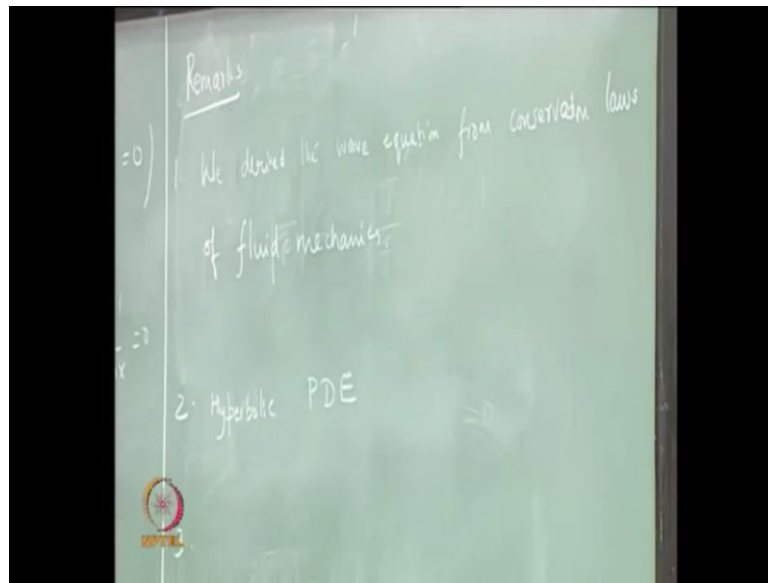 Remarks
=0)
1. We derived the wave equation from conservation laws
of fluid mechanics
=0
2. Hyperbolic PDE
=0
NPTEL
3.